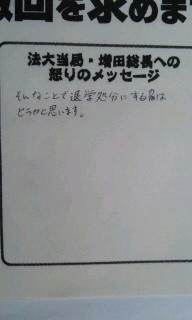 撤回を求めます
法大当局・増田総長への
怒りのメッセージ
そんなことで退学処分にするのは
どうかと思います。